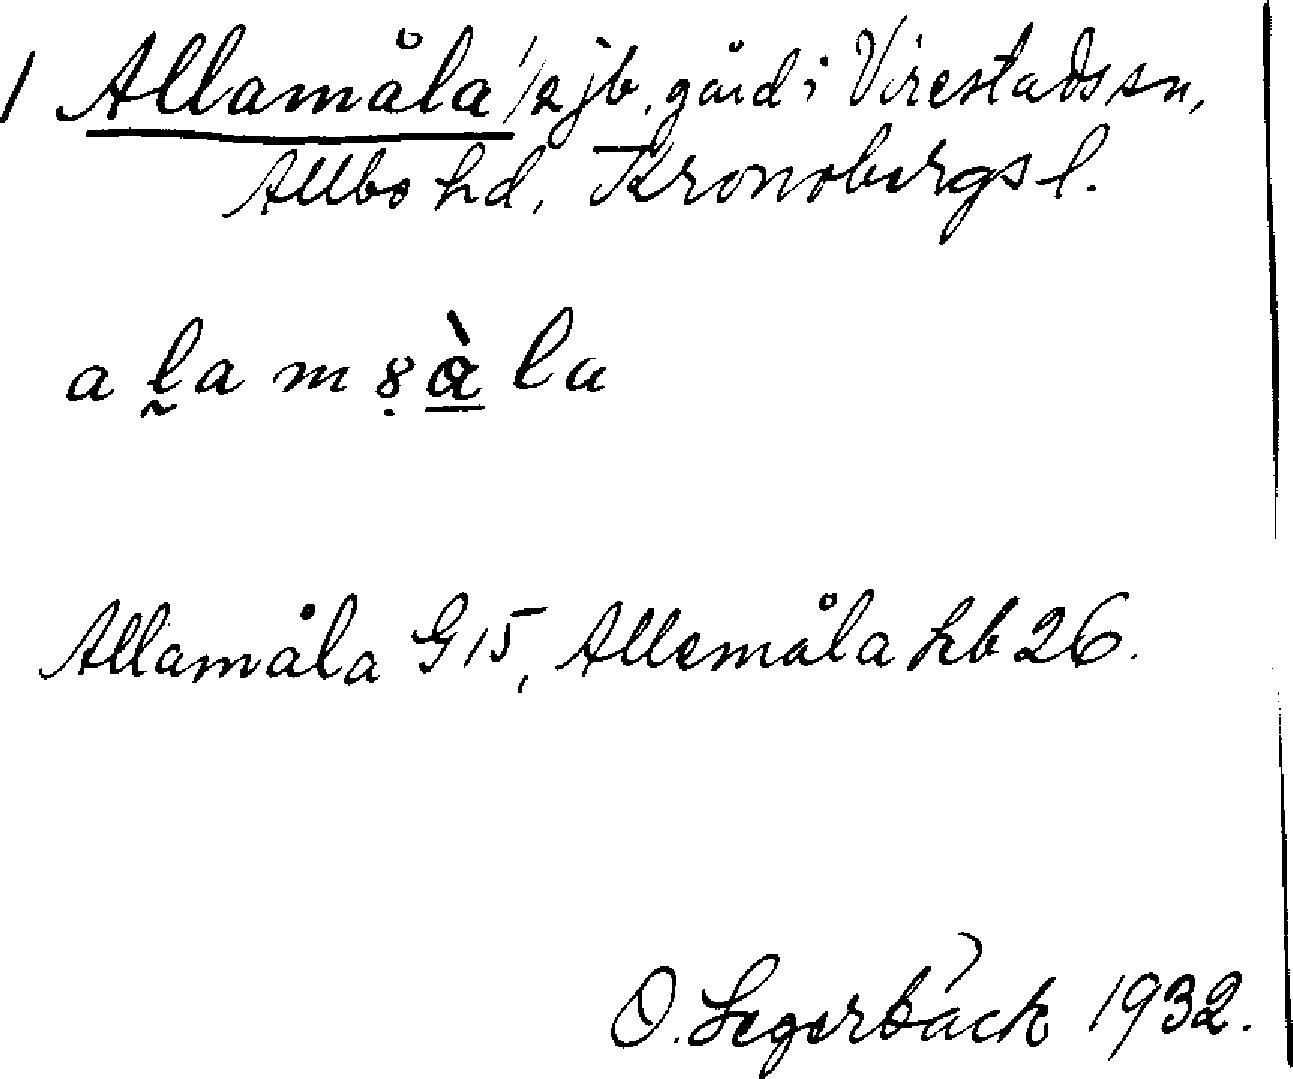 1 Allamåla 1/2 jb. gård i Virestads sn,
Allbo hd, Kronobergs l.
a l̰a m 8̣ɑ̲̀ la
Allamåla G15, Allemåla hb 26.
O. Segerbäck 1932.